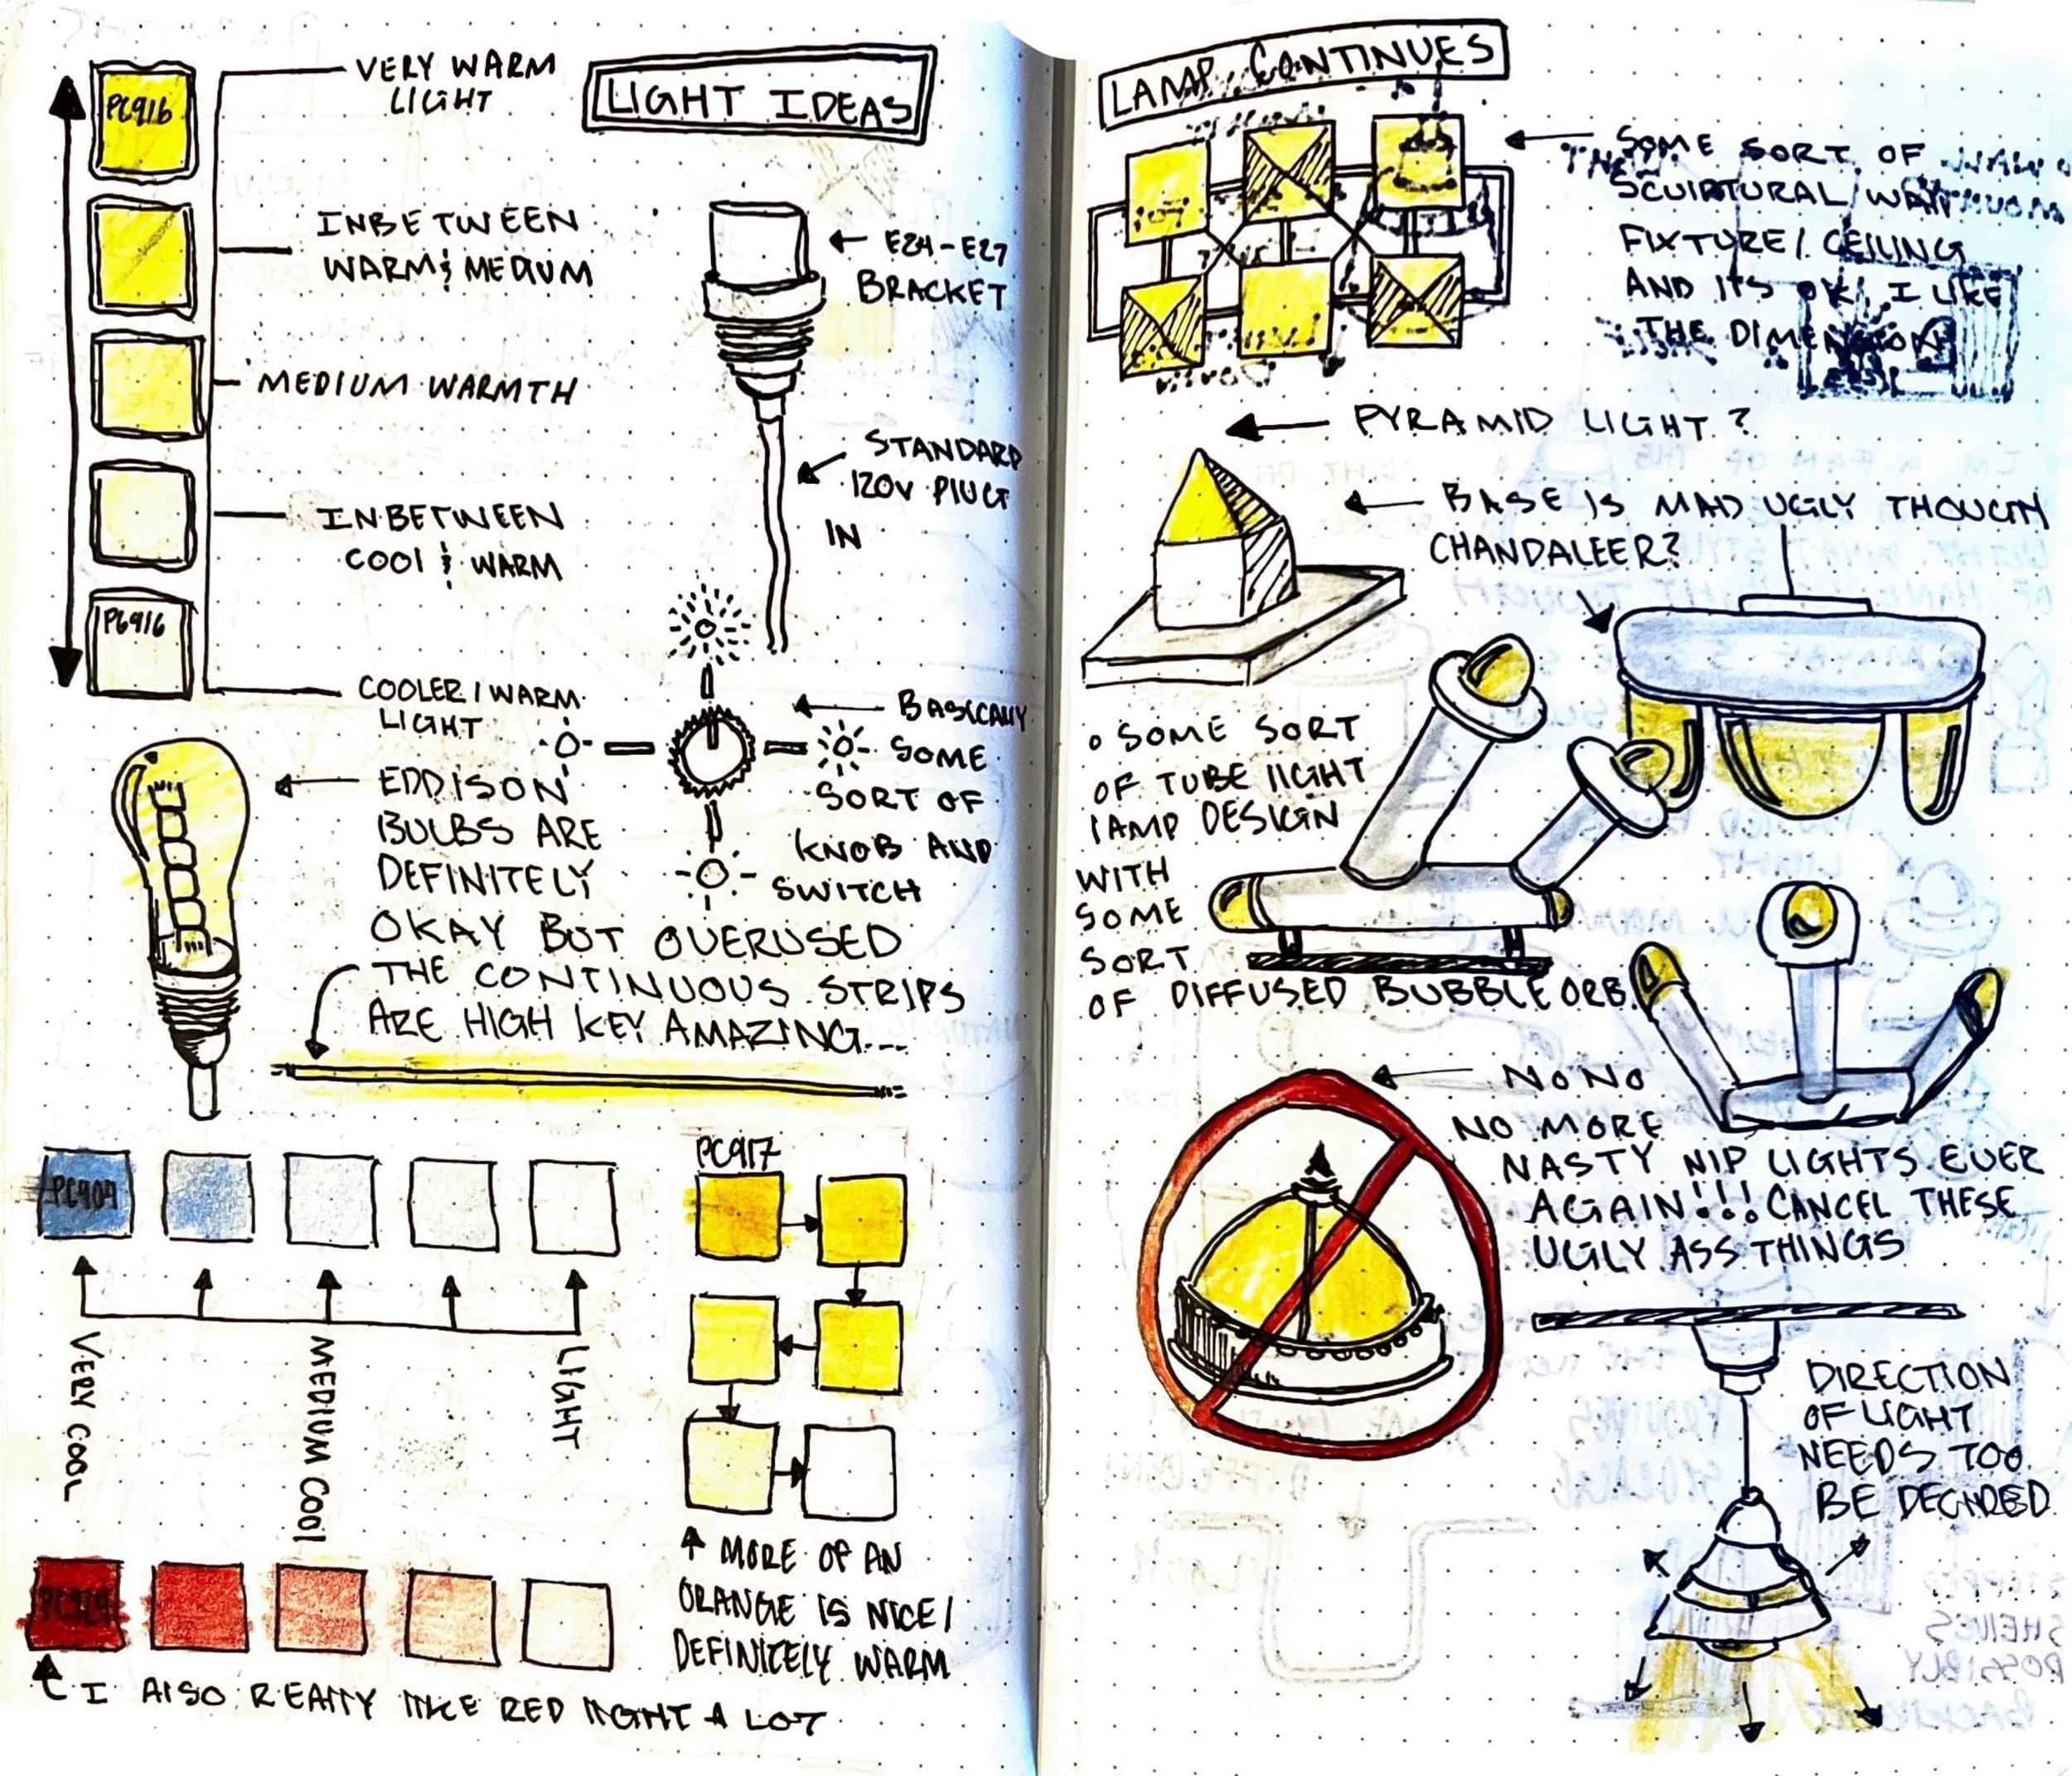 LIGHT IDEAS
PC916
VERY WARM
LIGHT
INBETWEEN
WARM & MEDIUM
MEDIUM WARMTH
INBETWEEN
COOl & WARM
PC916
COOLER/WARM
LIGHT
← E24-E27
BRACKET
STANDARD
120V PlUG
IN
BASICAllY
SOME
SORT OF
KNOB AND
SWITCH
EDDISON
BULBS ARE
DEFINITELY
OKAY BUT OVERUSED
THE CONTINUOUS STRIPS
ARE HIGH KEY AMAZING...
PC909
VERY COOL
MEDIUM COOl
LIGHT
PC917
MORE OF AN
ORANGE IS NICE/
DEFINITELY WARM
PC924
I AlSO REAllY lIKE RED lIGHT A LOT
LAMP CONTINUES
SOME SORT OF
SCUlPTURAL WAll
FIXTURE/CEILING
AND ITS OK, I LIKE
THE DIMENSION
PYRAMID LIGHT?
BASE IS MAD UGLY THOUGH
CHANDALEER?
o SOME SORT
OF TUBE lIGHT
lAMP DESIGN
WITH
SOME
SORT
OF DIFFUSED BUBBLE ORB.
NO NO
NO MORE
NASTY NIP LIGHTS EVER
AGAIN!!! CANCEL THESE
UGLY ASS THINGS
DIRECTION
OF LIGHT
NEEDS TOO
BE DECIDED